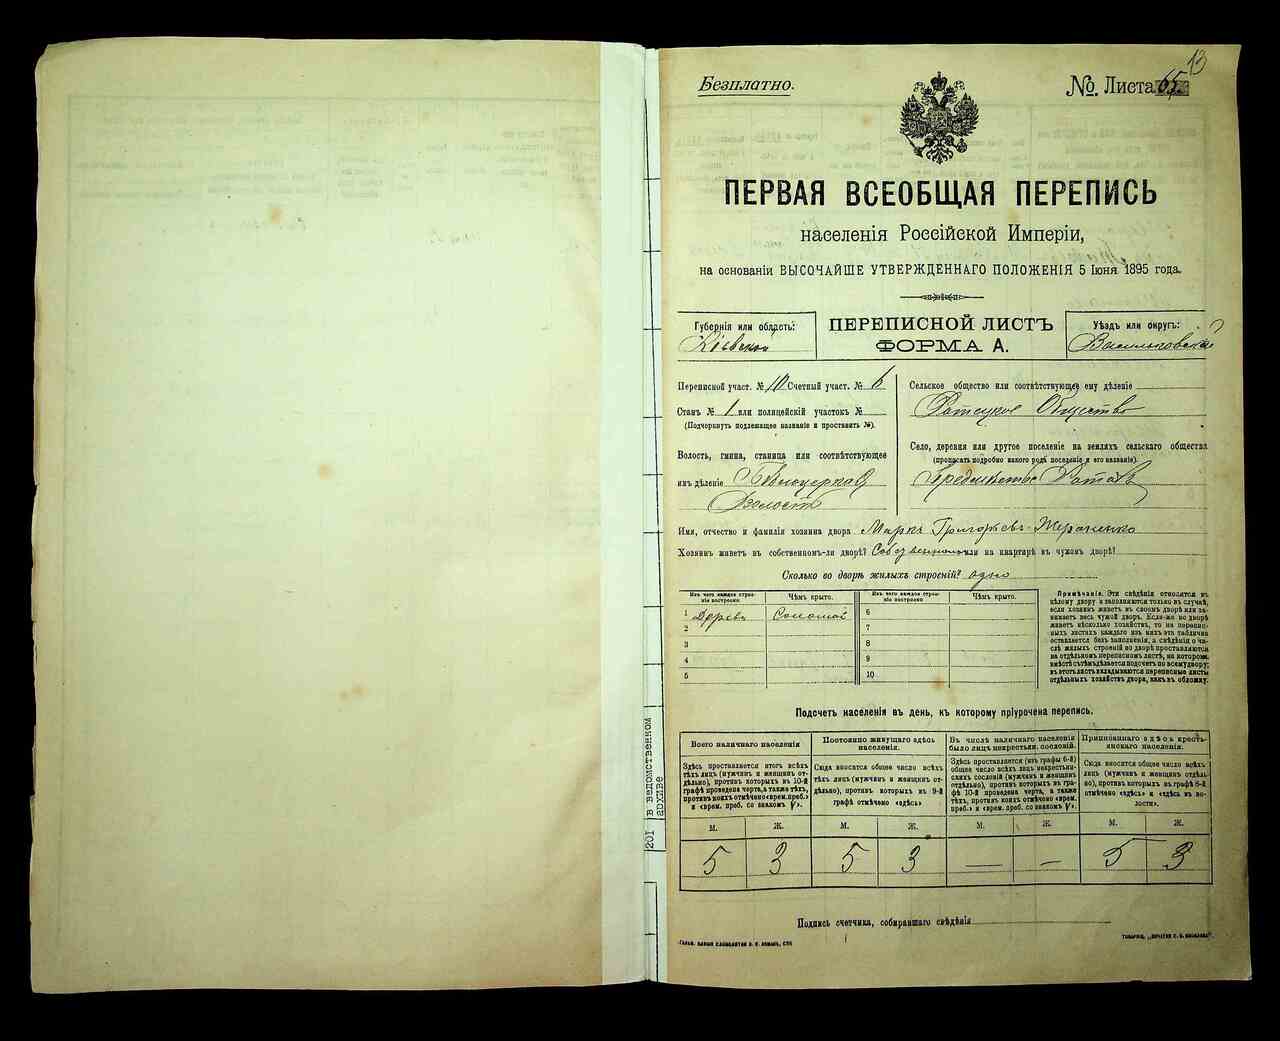 13
Безплатно.
№. Листа 65
ПЕРВАЯ ВСЕОБЩАЯ ПЕРЕПИСЬ
населенія Россійской Имперіи,
на основаніи ВЫСОЧАЙШЕ УТВЕРЖДЕННАГО ПОЛОЖЕНІЯ 5 Іюня 1895 года.
Губернія или область:
Кіевской
ПЕРЕПИСНОЙ ЛИСТЪ
ФОРМА А.
Уѣздъ или округъ:
Васильковскій
Переписной участ. № 10 Счетный участ. № 6
Станъ № 1 или полицейскій участокъ №
(Подчеркнуть подлежащее названіе и проставить №).
Волость, гмина, станица или соотвѣтствующее
имъ дѣленіе Бѣлоцерков
Волость
Сельское общество или соотвѣтствующее ему дѣленіе
Ротокское Общество
Село, деревня или другое поселеніе на земляхъ сельскаго общества
(прописать подробно какого рода поселеніе и его названіе).
Предмѣстье Ротокъ
Имя, отчество и фамилія хозяина двора Маркъ Григорьевъ
Хозяинъ живетъ въ собственномъ-ли дворѣ? Собственномъ или на квартирѣ въ чужомъ дворѣ?
Сколько во дворѣ жилыхъ строеній? одно
Изъ чего каждое строеніе построено.
Чѣмъ крыто.
Изъ чего каждое строеніе построено.
Чѣмъ крыто.
1 Дерев. Соломой 6
2 7
3 8
4 9
5 10
Примѣчаніе. Эти свѣдѣнія относятся къ
цѣлому двору и заполняются только въ случаѣ,
если хозяинъ живетъ въ своемъ дворѣ или за-
нимаетъ весь чужой дворъ. Если-же во дворѣ
живетъ нѣсколько хозяйствъ, то на перепис-
ныхъ листахъ каждаго изъ нихъ эта табличка
оставляется безъ заполненія, а свѣдѣнія о чи-
слѣ жилыхъ строеній во дворѣ проставляются
на отдѣльномъ переписномъ листѣ, на которомъ
вмѣстѣ съ тѣмъ дѣлается подсчетъ по всему двору;
въ этотъ листъ вкладываются переписные листы
отдѣльныхъ хозяйствъ двора, какъ въ обложку.
Подсчетъ населенія въ день, къ которому пріурочена перепись.
Всего наличнаго населенія
Здѣсь проставляется итогъ всѣхъ
тѣхъ лицъ (мужчинъ и женщинъ от-
дѣльно), противъ которыхъ въ 10-й
графѣ проведена черта, а также тѣхъ,
противъ коихъ отмѣчено «врем. преб.»
и «врем. преб. со знакомъ V».
Постоянно живущаго здѣсь
населенія.
Сюда вносится общее число всѣхъ
тѣхъ лицъ (мужчинъ и женщинъ от-
дѣльно), противъ которыхъ въ 9-й
графѣ отмѣчено «здѣсь»
Въ числѣ наличнаго населенія
было лицъ некрестьян. сословій.
Здѣсь проставляется (изъ графы 6-й)
общее число всѣхъ лицъ некрестьян-
скихъ сословій (мужчинъ и женщинъ
отдѣльно), противъ которыхъ въ гра-
фѣ 10-й проведена черта, а также
тѣхъ, противъ коихъ отмѣчено «врем.
преб.» и «врем. преб. со знакомъ V».
Приписаннаго здѣсь кресть-
янскаго населенія.
Сюда вносится общее число всѣхъ
лицъ (мужчинъ и женщинъ отдѣль-
но), противъ которыхъ въ графѣ 8-й
отмѣчено «здѣсь» и «здѣсь въ во-
лости».
М. Ж. М. Ж. М. Ж. М. Ж.
5 3 5 3 — — 5 3
Подпись счетчика, собиравшаго свѣдѣнія
201 в ведомственном
архиве